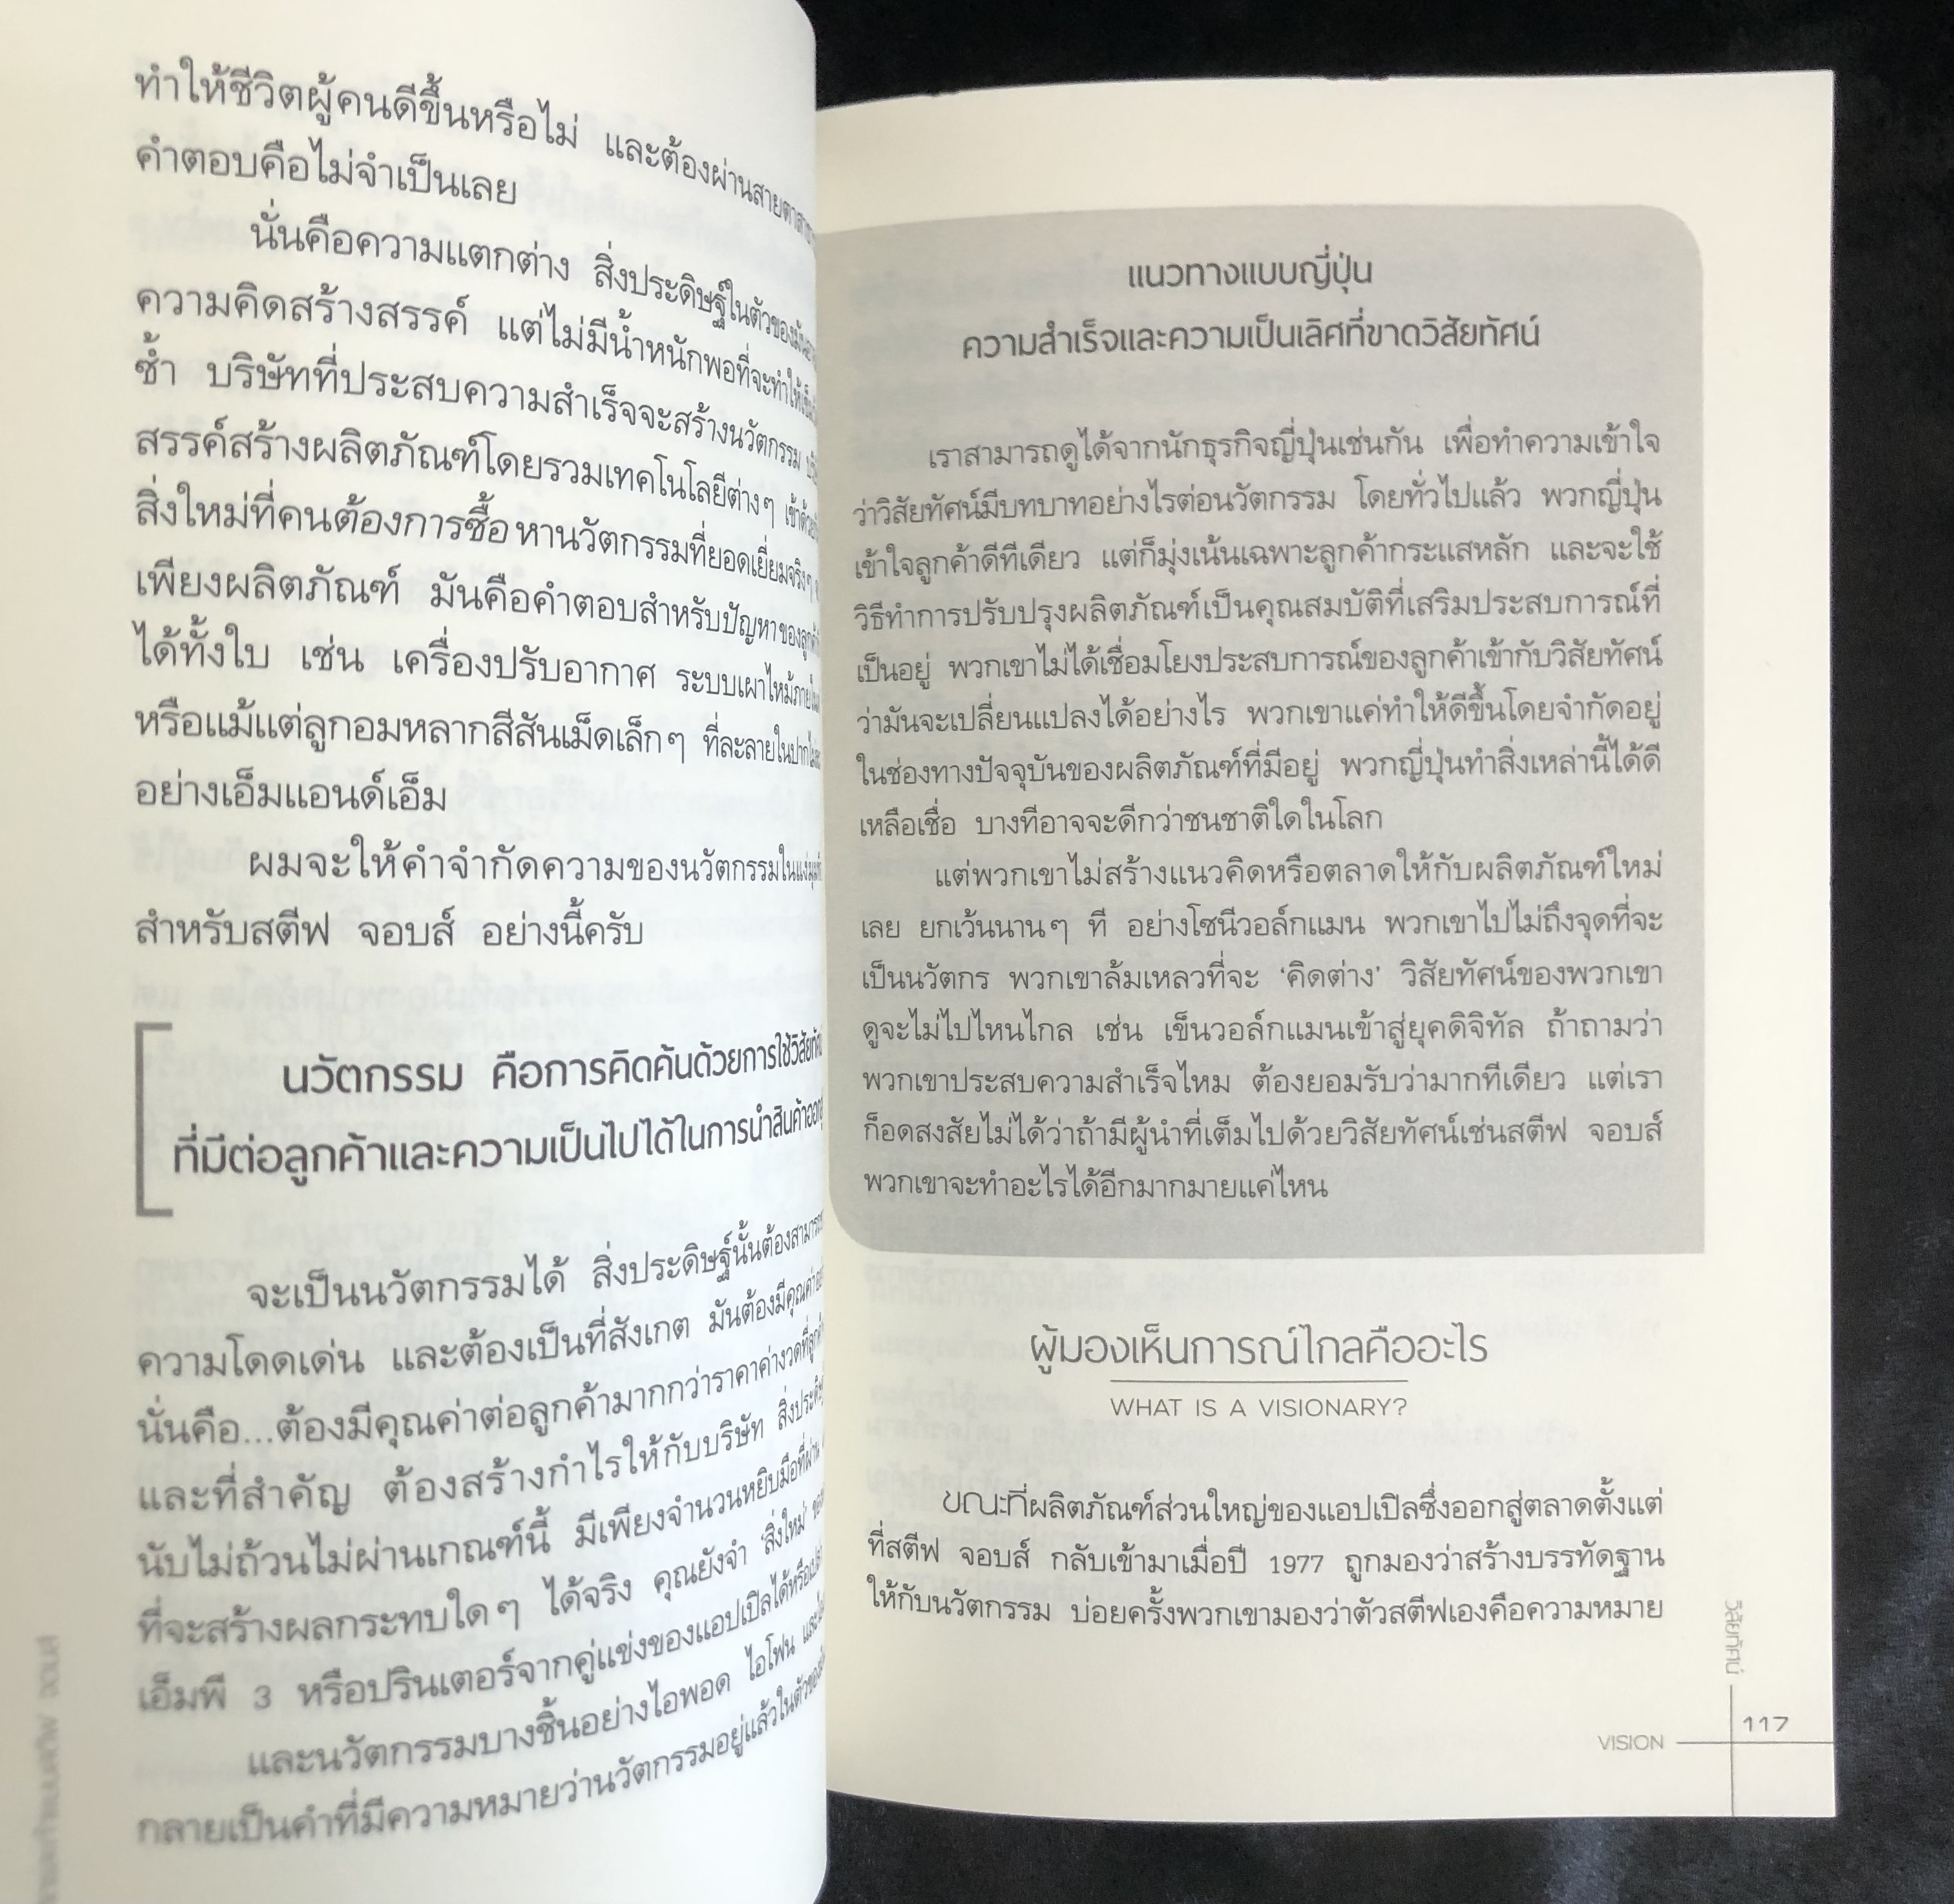 ทำให้ชีวิตผู้คนดีขึ้นหรือไม่ และต้องผ่านสายตา
คำตอบคือไม่จำเป็นเลย
นั่นคือความแตกต่าง สิ่งประดิษฐ์ในตัวของมัน
ความคิดสร้างสรรค์ แต่ไม่มีน้ำหนักพอที่จะทำให้
ซ้ำ บริษัทที่ประสบความสำเร็จจะสร้างนวัตกรรม
สรรค์สร้างผลิตภัณฑ์โดยรวมเทคโนโลยีต่างๆ เข้าด้วย
สิ่งใหม่ที่คนต้องการซื้อ หานวัตกรรมที่ยอดเยี่ยมจริงๆ
เพียงผลิตภัณฑ์ มันคือคำตอบสำหรับปัญหาของ
ได้ทั้งใบ เช่น เครื่องปรับอากาศ ระบบเผาไหม้
หรือแม้แต่ลูกอมหลากสีสันเม็ดเล็กๆ ที่ละลายในปาก
อย่างเอ็มแอนด์เอ็ม
ผมจะให้คำจำกัดความของนวัตกรรมในแง่
สำหรับสตีฟ จอบส์ อย่างนี้ครับ
นวัตกรรม คือการคิดค้นด้วยการใช้
ที่มีต่อลูกค้าและความเป็นไปได้ในการนำสินค้า
จะเป็นนวัตกรรมได้ สิ่งประดิษฐ์นั้นต้อง
ความโดดเด่น และต้องเป็นที่สังเกต มันต้องมีคุณค่า
นั่นคือ...ต้องมีคุณค่าต่อลูกค้ามากกว่าราคาค่างวดที่
และที่สำคัญ ต้องสร้างกำไรให้กับบริษัท
นับไม่ถ้วนไม่ผ่านเกณฑ์นี้ มีเพียงจำนวนหยิบมือที่ผ่าน
ที่จะสร้างผลกระทบใดๆ ได้จริง คุณยังจำ ‘สิ่งใหม่’
เอ็มพี 3 หรือปรินเตอร์จากคู่แข่งของแอปเปิลได้
และนวัตกรรมบางชิ้นอย่างไอพอด ไอโฟน
กลายเป็นคำที่มีความหมายว่านวัตกรรมอยู่แล้วในตัว
แนวทางแบบญี่ปุ่น
ความสำเร็จและความเป็นเลิศที่ขาดวิสัยทัศน์
เราสามารถดูได้จากนักธุรกิจญี่ปุ่นเช่นกัน เพื่อทำความเข้าใจ
ว่าวิสัยทัศน์มีบทบาทอย่างไรต่อนวัตกรรม โดยทั่วไปแล้ว พวกญี่ปุ่น
เข้าใจลูกค้าดีทีเดียว แต่ก็มุ่งเน้นเฉพาะลูกค้ากระแสหลัก และจะใช้
วิธีทำการปรับปรุงผลิตภัณฑ์เป็นคุณสมบัติที่เสริมประสบการณ์ที่
เป็นอยู่ พวกเขาไม่ได้เชื่อมโยงประสบการณ์ของลูกค้าเข้ากับวิสัยทัศน์
ว่ามันจะเปลี่ยนแปลงได้อย่างไร พวกเขาแค่ทำให้ดีขึ้นโดยจำกัดอยู่
ในช่องทางปัจจุบันของผลิตภัณฑ์ที่มีอยู่ พวกญี่ปุ่นทำสิ่งเหล่านี้ได้ดี
เหลือเชื่อ บางทีอาจจะดีกว่าชนชาติใดในโลก
แต่พวกเขาไม่สร้างแนวคิดหรือตลาดให้กับผลิตภัณฑ์ใหม่
เลย ยกเว้นนานๆ ที อย่างโซนีวอล์กแมน พวกเขาไปไม่ถึงจุดที่จะ
เป็นนวัตกร พวกเขาล้มเหลวที่จะ ‘คิดต่าง’ วิสัยทัศน์ของพวกเขา
ดูจะไม่ไปไหนไกล เช่น เข็นวอล์กแมนเข้าสู่ยุคดิจิทัล ถ้าถามว่า
พวกเขาประสบความสำเร็จไหม ต้องยอมรับว่ามากทีเดียว แต่เรา
ก็อดสงสัยไม่ได้ว่าถ้ามีผู้นำที่เต็มไปด้วยวิสัยทัศน์เช่นสตีฟ จอบส์
พวกเขาจะทำอะไรได้อีกมากมายแค่ไหน
ผู้มองเห็นการณ์ไกลคืออะไร
WHAT IS A VISIONARY?
ขณะที่ผลิตภัณฑ์ส่วนใหญ่ของแอปเปิลซึ่งออกสู่ตลาดตั้งแต่
ที่สตีฟ จอบส์ กลับเข้ามาเมื่อปี 1977 ถูกมองว่าสร้างบรรทัดฐาน
ให้กับนวัตกรรม บ่อยครั้งพวกเขามองว่าตัวสตีฟเองคือความหมาย
วิสัยทัศน์
VISION
117